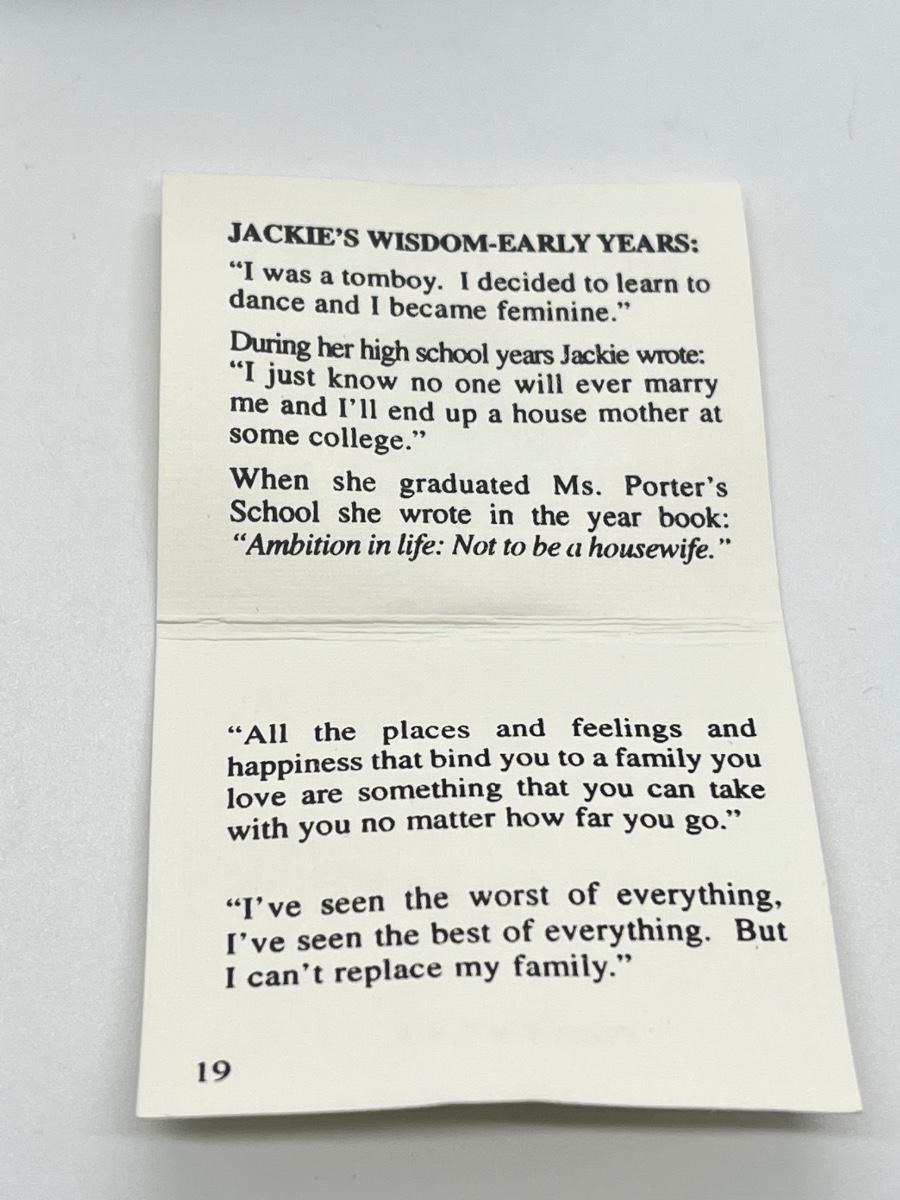 JACKIE'S WISDOM-EARLY YEARS:
“I was a tomboy. I decided to learn to
dance and I became feminine.”
During her high school years Jackie wrote:
“I just know no one will ever marry
me and I'll end up a house mother at
some college.”
When she graduated Ms. Porter's
School she wrote in the year book:
“Ambition in life: Not to be a housewife.”
“All the places and feelings and
happiness that bind you to a family you
love are something that you can take
with you no matter how far you go.”
“I've seen the worst of everything,
I've seen the best of everything. But
I can't replace my family.”
19